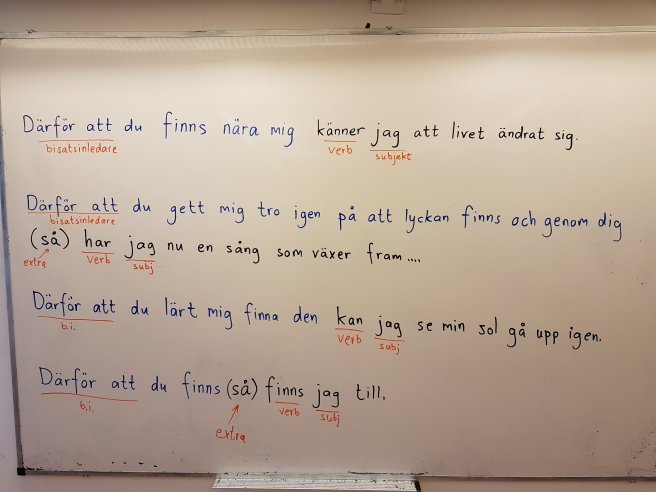 Därför att du finns nära mig känner jag att livet ändrat sig.
bisatsinledare verb subjekt
Därför att du gett mig tro igen på att lyckan finns och genom dig
bisatsinledare
(så) har jag nu en sång som växer fram....
extra verb subj
Därför att du lärt mig finna den kan jag se min sol gå upp igen.
b.i. verb subj
Därför att du finns (så) finns jag till.
b.i. verb subj
extra